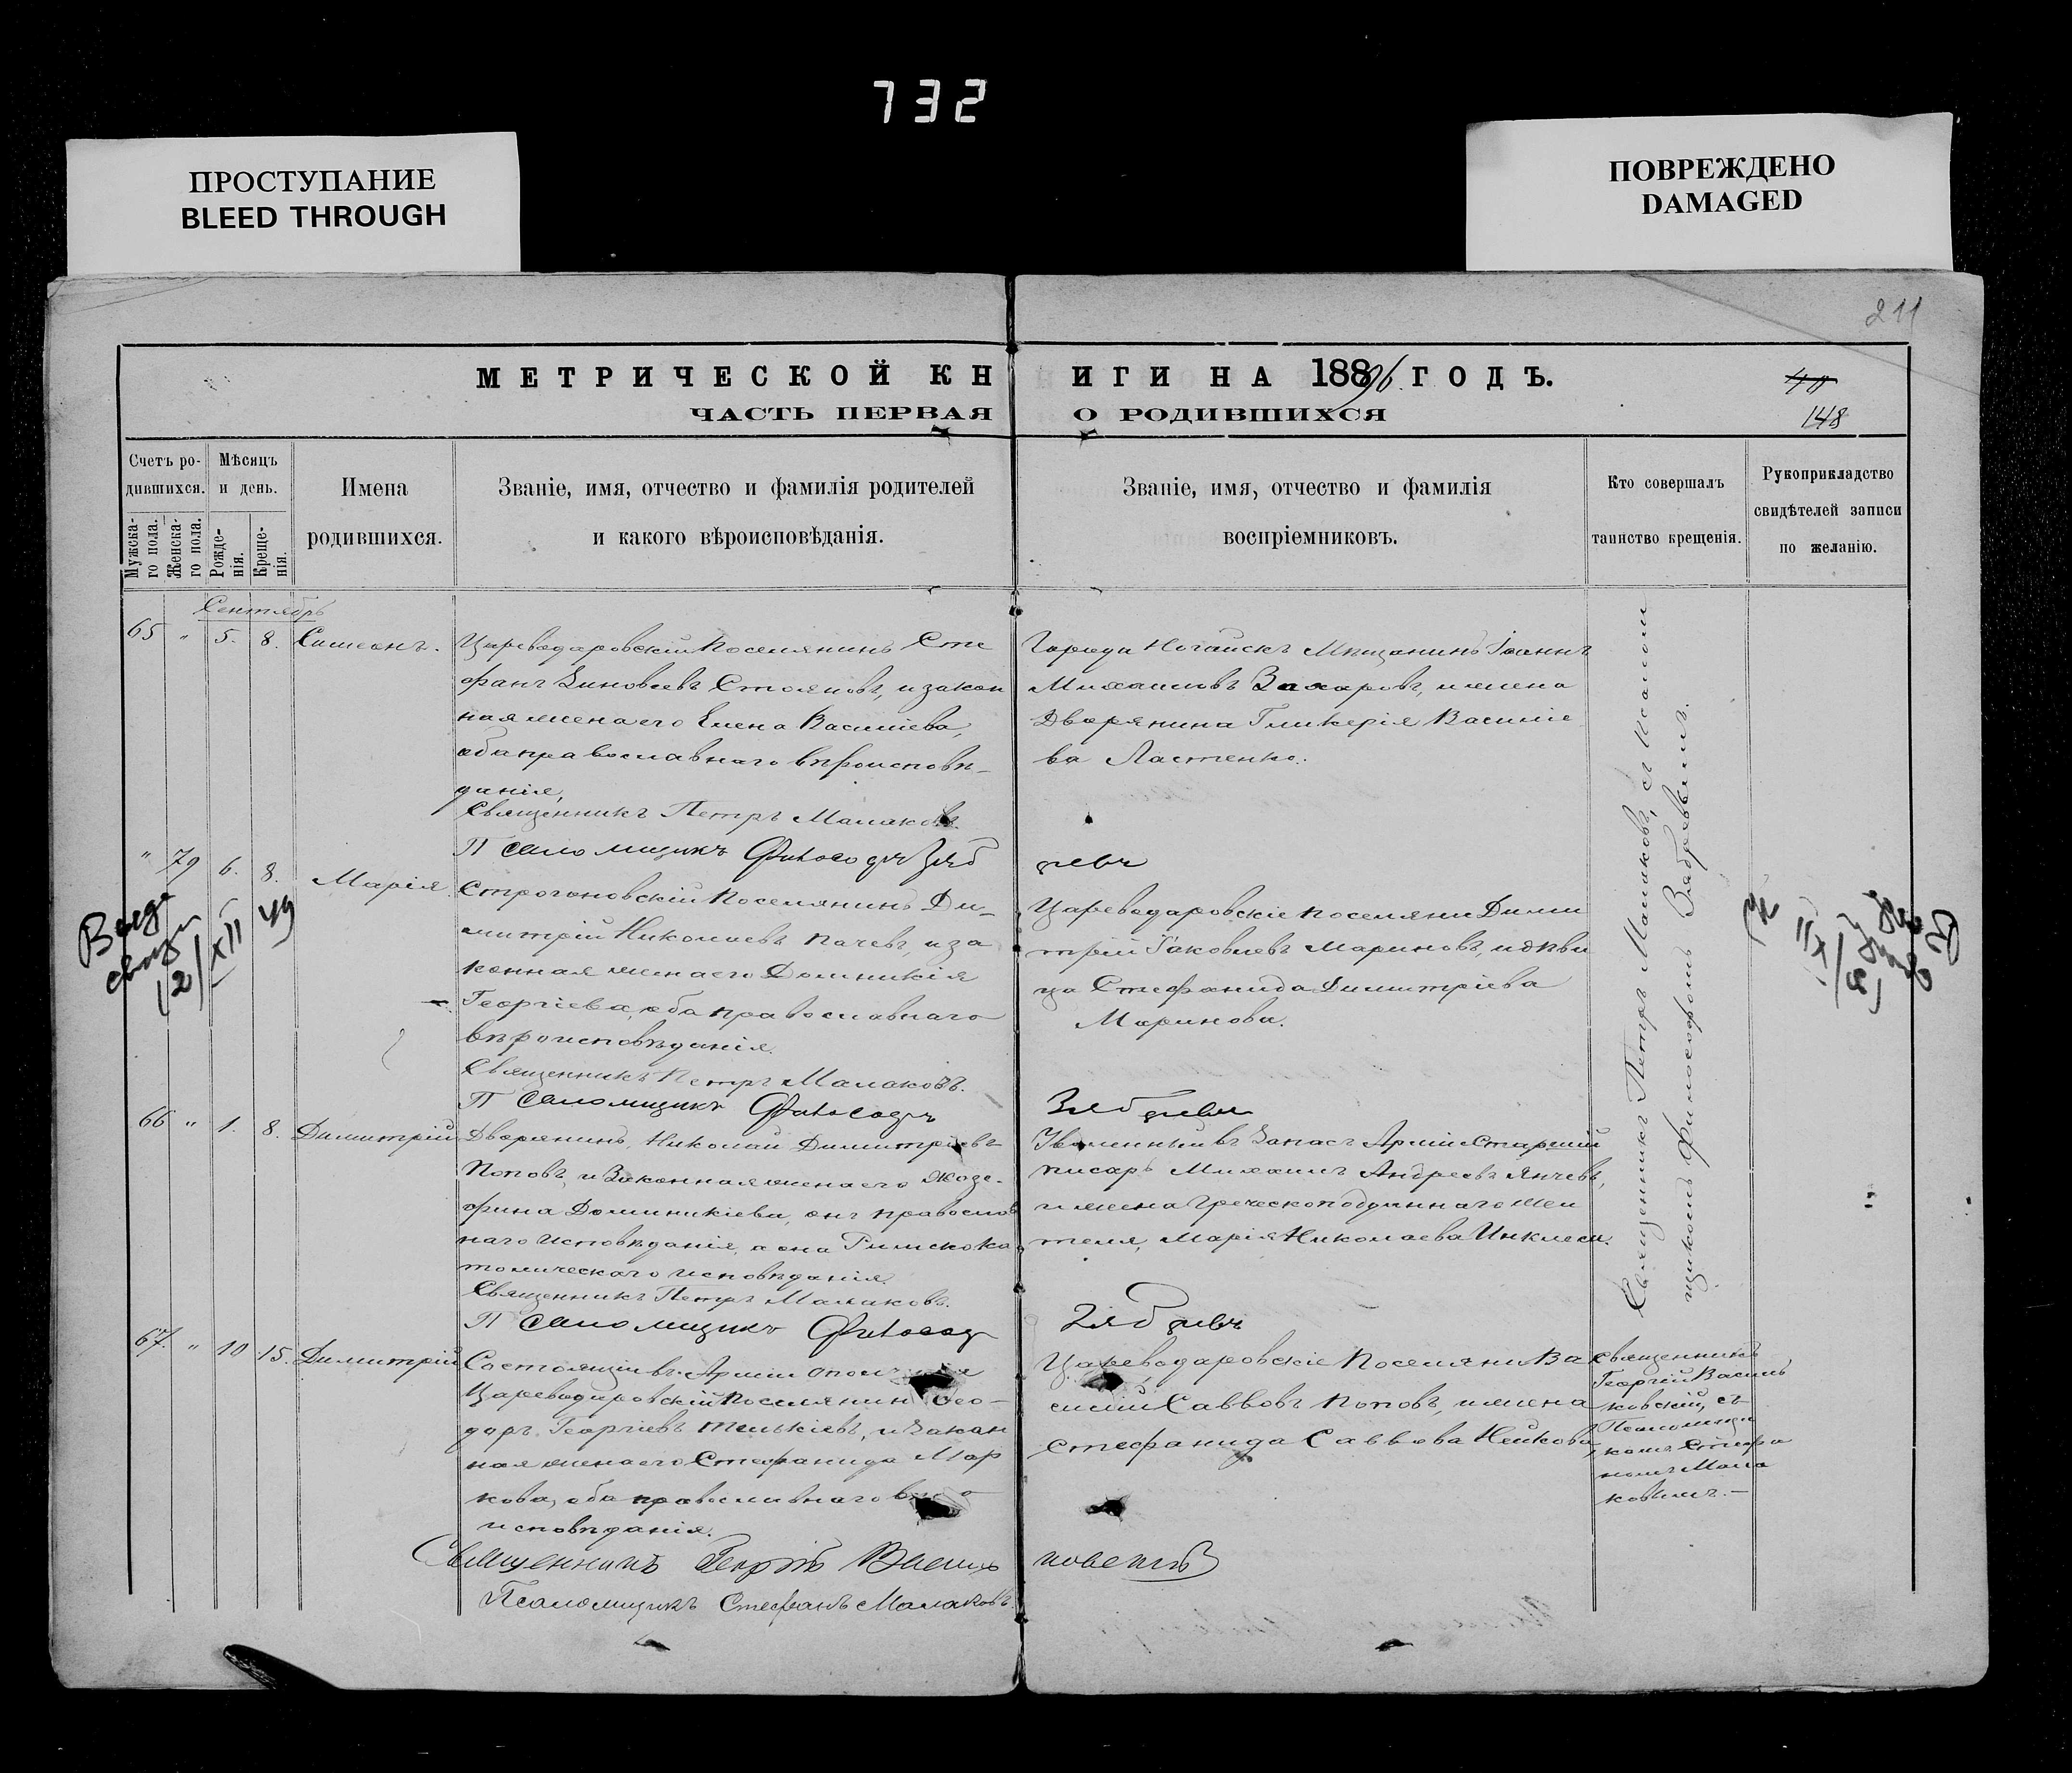 732
ПРОСТУПАНИЕ
BLEED THROUGH
ПОВРЕЖДЕНО
DAMAGED
211
МЕТРИЧЕСКОЙ КНИГИ НА 1896 ГОДЪ.
ЧАСТЬ ПЕРВАЯ О РОДИВШИХСЯ
148
Счетъ родившихся.
Мужскаго пола.
Женскаго пола.
Мѣсяцъ и день.
Рожденія.
Крещенія.
Имена
родившихся.
Званіе, имя, отчество и фамилія родителей
и какого вѣроисповѣданія.
Званіе, имя, отчество и фамилія
воспріемниковъ.
Кто совершалъ
таинство крещенія.
Рукоприкладство
свидѣтелей записи
по желанію.
Сентябрь
65 " 5. 8. Симеонъ.
Цареводаровскій Поселянинъ Сте
фанъ Зиновьевъ Стояновъ, и закон
ная жена его Елена Василіева,
оба православнаго вѣроисповѣ-
данія,
Священникъ Петръ Малаковъ.
Псаломщикъ Философъ Зябревъ
Города Ногайскъ Мѣщанинъ Іоаннъ
Михаиловъ Захаровъ, и жена
Дворянина Гликерія Василіе
ва Ластенко.
" 79 6. 8. Марія.
Строгоновскій Поселянинъ Ди-
митрій Николаевъ Пачевъ, и за
конная жена его Домникія
Георгіева, оба православнаго
вѣроисповѣданія.
Священникъ Петръ Малаковъ.
Псаломщикъ Философъ Зябревъ
Цареводаровскіе поселяни Дими
трій Іаковлевъ Мариновъ, и дѣви
ца Стефанида Димитріева
Маринова.
12/XII 49
66 " 1. 8. Димитрій
Дворянинъ, Николай Димитріевъ
Поповъ, и Законная жена его Жозе-
фина Доминикіева, онъ православ
наго Исповѣданія, а она Римско ка
толическаго исповѣданія.
Священникъ Петръ Малаковъ.
Псаломщикъ Философъ Зябревъ
Уволенный въ Запасъ Арміи Старшій
писарь Михаилъ Андреевъ Янчевъ,
и жена Греческоподданнаго
Марія Николаева
Священникъ Петръ Малаковъ, съ Псалом
щикомъ Философомъ Зябревымъ.
67. " 10 15. Димитрій
Состоящій въ Арміи
Цареводаровскій Поселянинъ Ѳео-
доръ Георгіевъ Тенькіевъ, и Закон
ная жена его Стефанида Мар
кова, оба православнаго
исповѣданія.
Священникъ Георгій Васильковскій
Псаломщикъ Стефанъ Малаковъ.
Цареводаровскіе Поселяни Ва
силій Саввовъ Поповъ, и жена
Стефанида Саввова Нейкова,
Священникъ
Георгій Василь
ковскій, съ
Псаломщи
комъ Стефа
номъ Мала
ковымъ.-